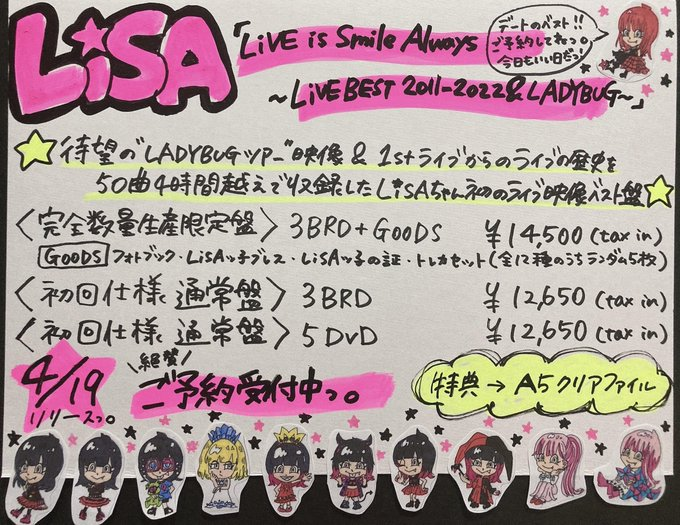 LiSA
「LiVE is Smile Always
～LiVE BEST 2011-2022 & LADYBUG～」
デートのベスト!!
ご予約してねっ。
今日もいい日だっ!
待望の"LADYBUGツアー"映像 & 1stライブからのライブの歴史を
50曲4時間越えで収録したLiSAちゃん初のライブ映像ベスト盤
〈完全数量生産限定盤〉 3BRD+GOODS ¥14,500 (tax in)
GOODS フォトブック・LiSAッ子ブレス・LiSAッ子の証・トレカセット(全12種のうちランダム5枚)
〈初回仕様 通常盤〉 3BRD ¥12,650 (tax in)
〈初回仕様 通常盤〉 5DVD ¥12,650 (tax in)
4/19
リリースっ。
絶賛
ご予約受付中っ。
特典→A5クリアファイル